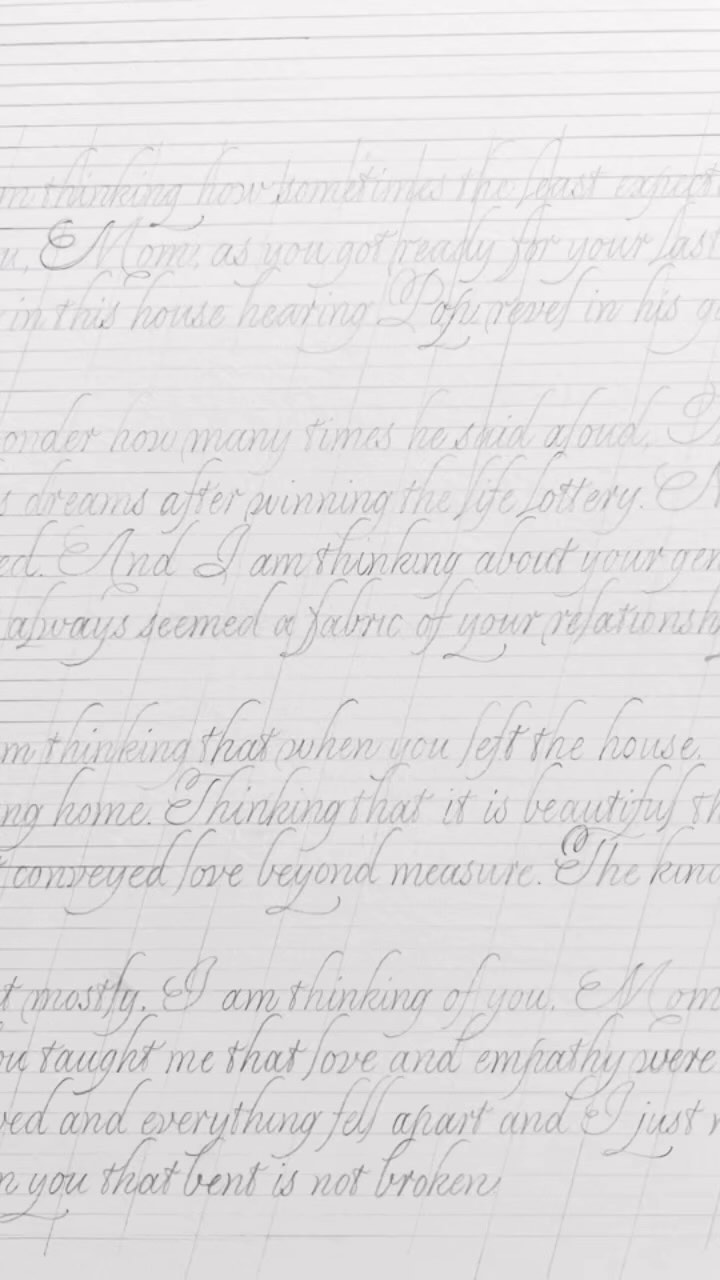 m thinking how sometimes the least expect
u, Mom, as you got ready for your last
in this house hearing Pop revel in his g
onder how many times he said aloud.
s dreams after winning the life lottery.
ed. And I am thinking about your gen
always seemed a fabric of your relationsh
m thinking that when you left the house.
ng home. Thinking that it is beautiful th
t conveyed love beyond measure. The kind
t mostly, I am thinking of you, Mom
ou taught me that love and empathy were
ved and everything fell apart and I just
n you that bent is not broken